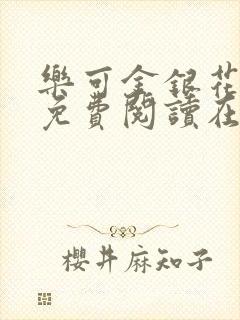 樂可金銀花
免費閱讀在
櫻井麻知子